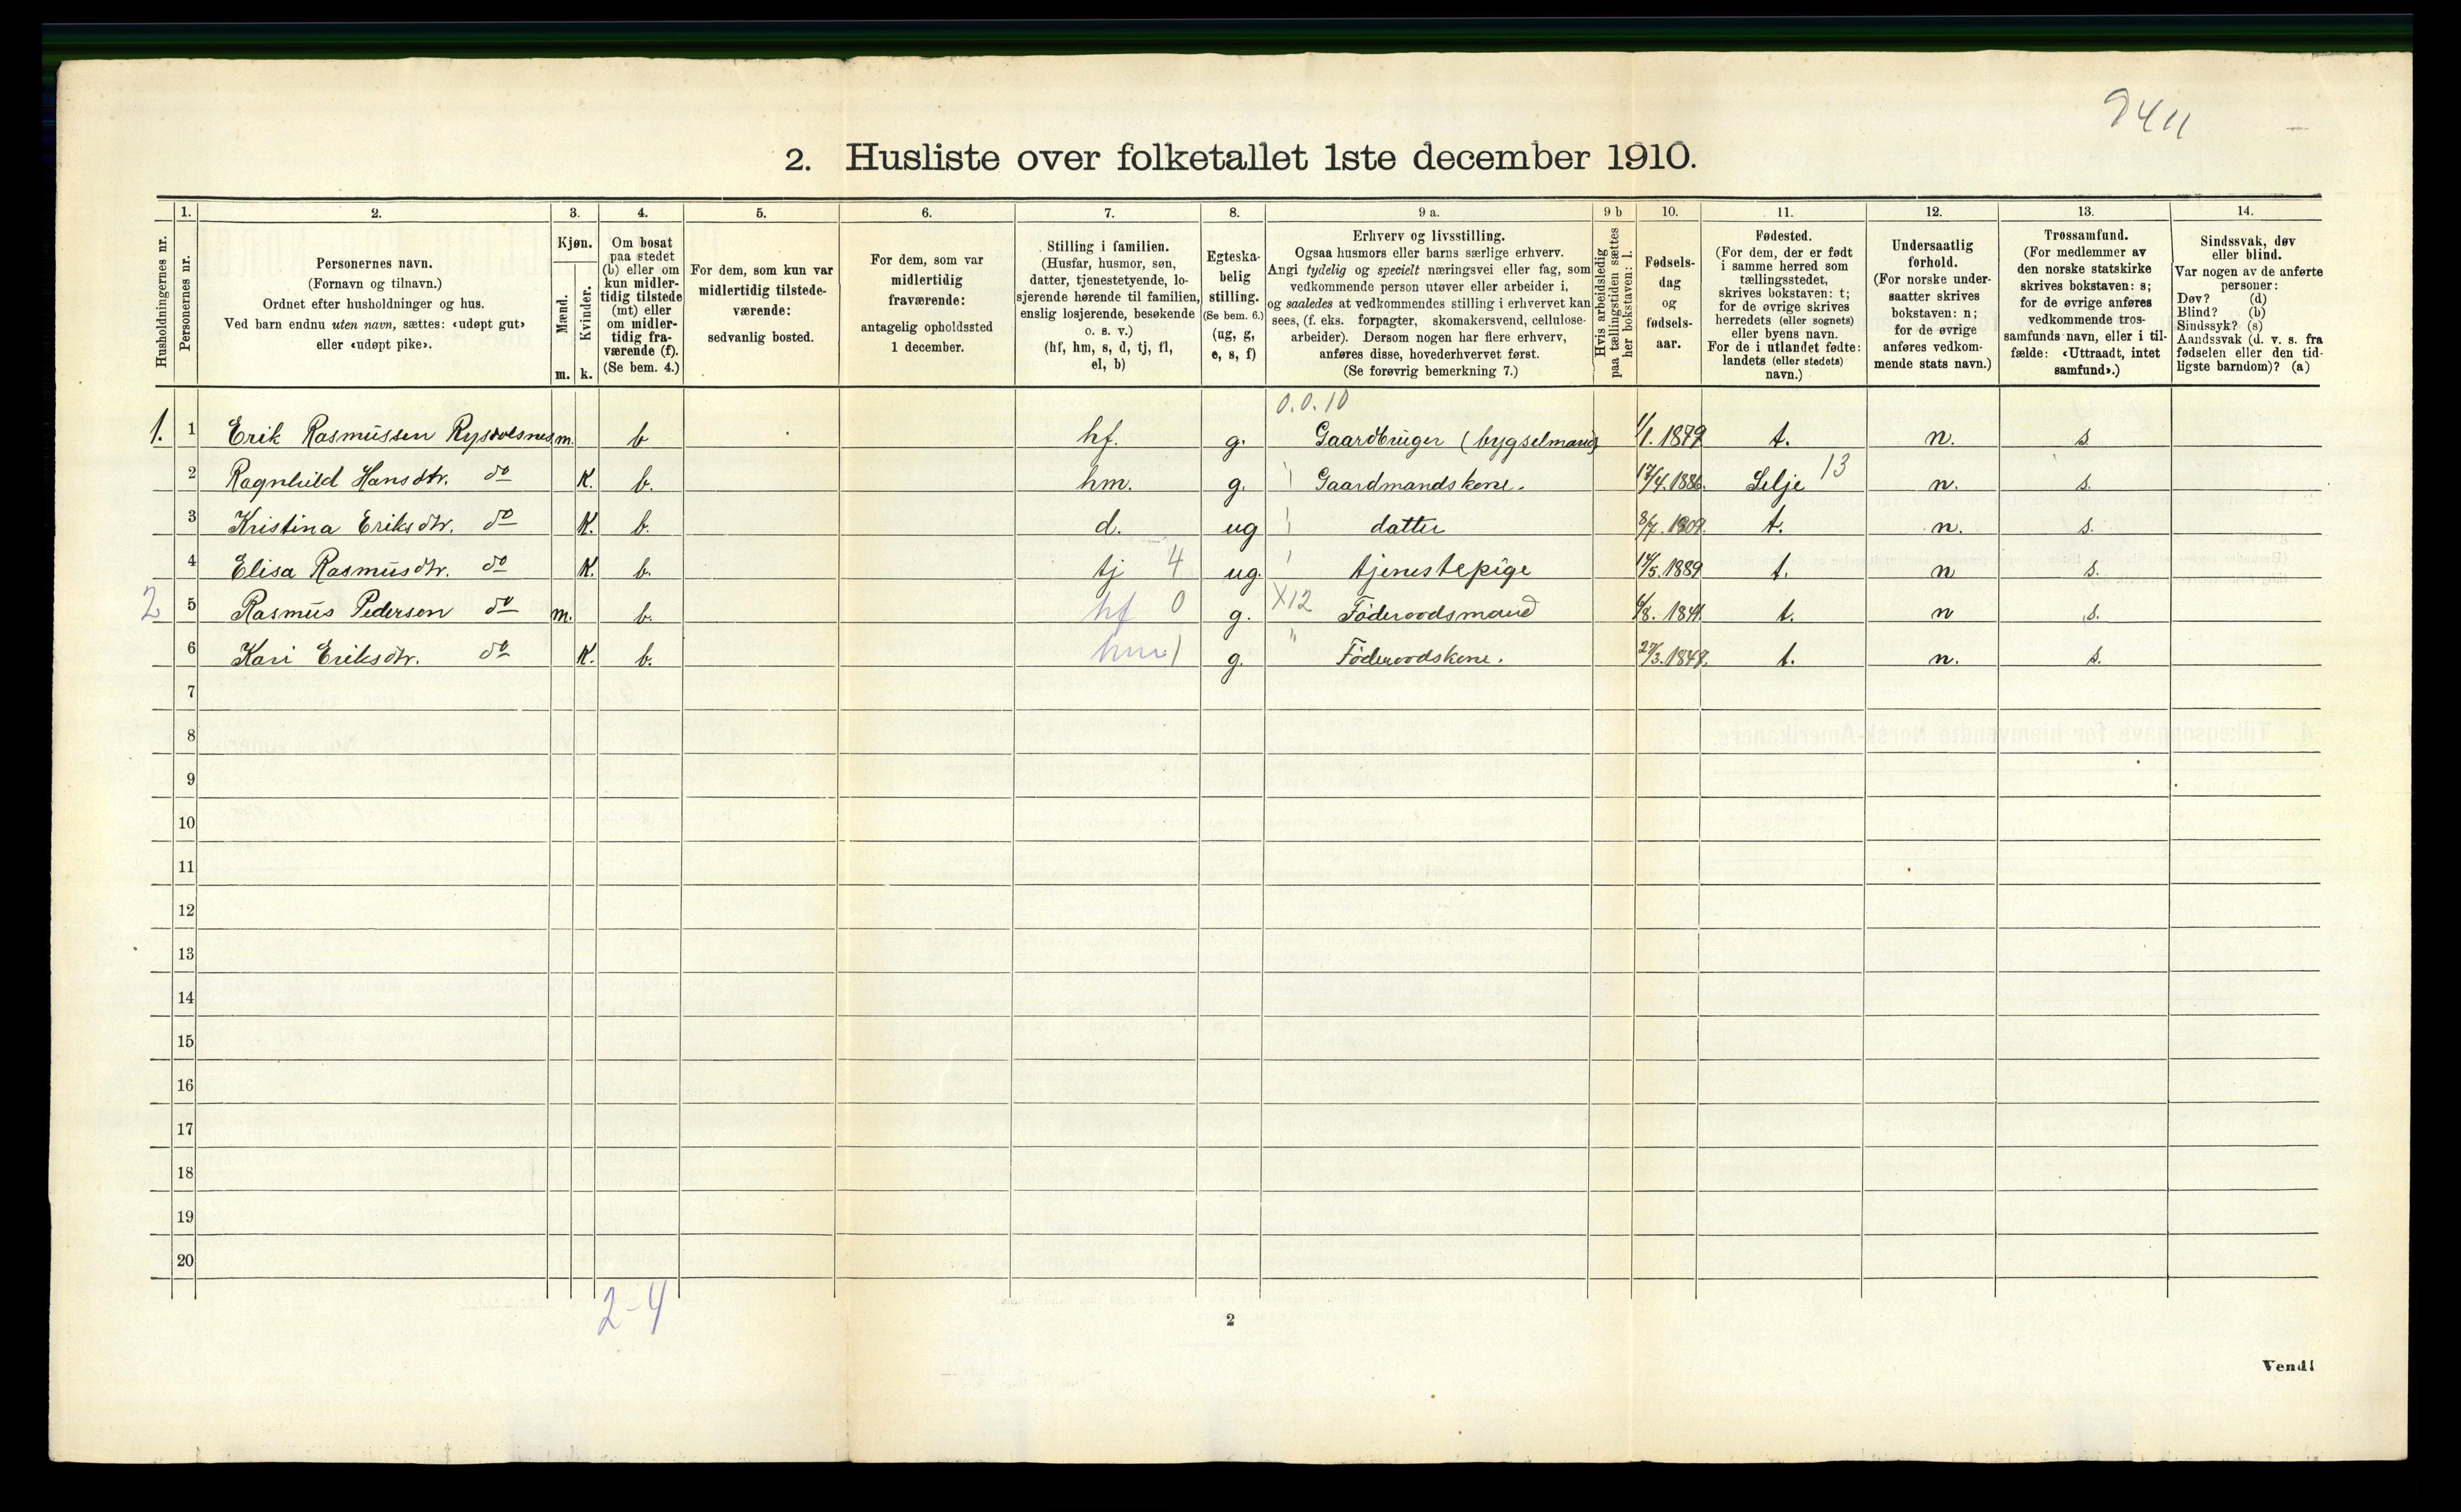 9411
2. Husliste over folketallet 1ste december 1910.
Husholdningernes nr.
1.
Personernes nr.
2.
Personernes navn.
(Fornavn og tilnavn.)
Ordnet efter husholdninger og hus.
Ved barn endnu uten navn, sættes: «udøpt gut»
eller «udøpt pike».
3.
Kjøn.
Mænd.
Kvinder.
m. k.
4.
Om bosat
paa stedet
(b) eller om
kun midler-
tidig tilstede
(mt) eller
om midler-
tidig fra-
værende (f).
(Se bem. 4.)
5.
For dem, som kun var
midlertidig tilstede-
værende:
sedvanlig bosted.
6.
For dem, som var
midlertidig
fraværende:
antagelig opholdssted
1 december.
7.
Stilling i familien.
(Husfar, husmor, søn,
datter, tjenestetyende, lo-
sjerende hørende til familien,
enslig losjerende, besøkende
o. s. v.)
(hf, hm, s, d, tj, fl,
el, b)
8.
Egteska-
belig
stilling.
(Se bem. 6.)
(ug, g,
e, s, f)
9 a.
Erhverv og livsstilling.
Ogsaa husmors eller barns særlige erhverv.
Angi tydelig og specielt næringsvei eller fag, som
vedkommende person utøver eller arbeider i,
og saaledes at vedkommendes stilling i erhvervet kan
sees, (f. eks. forpagter, skomakersvend, cellulose-
arbeider). Dersom nogen har flere erhverv,
anføres disse, hovederhvervet først.
(Se forøvrig bemerkning 7.)
9 b
Hvis arbeidsledig
paa tællingstiden sættes
her bokstaven: l.
10.
Fødsels-
dag
og
fødsels-
aar.
11.
Fødested.
(For dem, der er født
i samme herred som
tællingsstedet,
skrives bokstaven: t;
for de øvrige skrives
herredets (eller sognets)
eller byens navn.
For de i utlandet fødte:
landets (eller stedets)
navn.)
12.
Undersaatlig
forhold.
(For norske under-
saatter skrives
bokstaven: n;
for de øvrige
anføres vedkom-
mende stats navn.)
13.
Trossamfund.
(For medlemmer av
den norske statskirke
skrives bokstaven: s;
for de øvrige anføres
vedkommende tros-
samfunds navn, eller i til-
fælde: «Uttraadt, intet
samfund».)
14.
Sindssvak, døv
eller blind.
Var nogen av de anførte
personer:
Døv? (d)
Blind? (b)
Sindssyk? (s)
Aandssvak (d. v. s. fra
fødselen eller den tid-
ligste barndom)? (a)
0.0.10
1. 1 Erik Rasmussen m. b hf. g. Gaardbruger (bygselmand) 1/1. 1879 t. n. s.
2 Ragnhild Hansdtr. do K. b. hm. g. Gaardmandskone. 17/4. 1886. Selje 13 n. s.
3 Kristina Eriksdtr. do K. b. d. ug datter 8/7. 1909. t. n. s.
4 Elisa Rasmusdtr. do K. b. tj 4 ug. tjenestepige 14/5. 1889 t. n s.
2 5 Rasmus Pederson do m. b. hf 0 g. X12 Föderoodsmand t. n s.
6 Kari Eriksdtr. do K. b. hm 1 g. " Föderoodskone. t. n. s.
7
8
9
10
11
12
13
14
15
16
17
18
19
20
2-4
2
Vend!